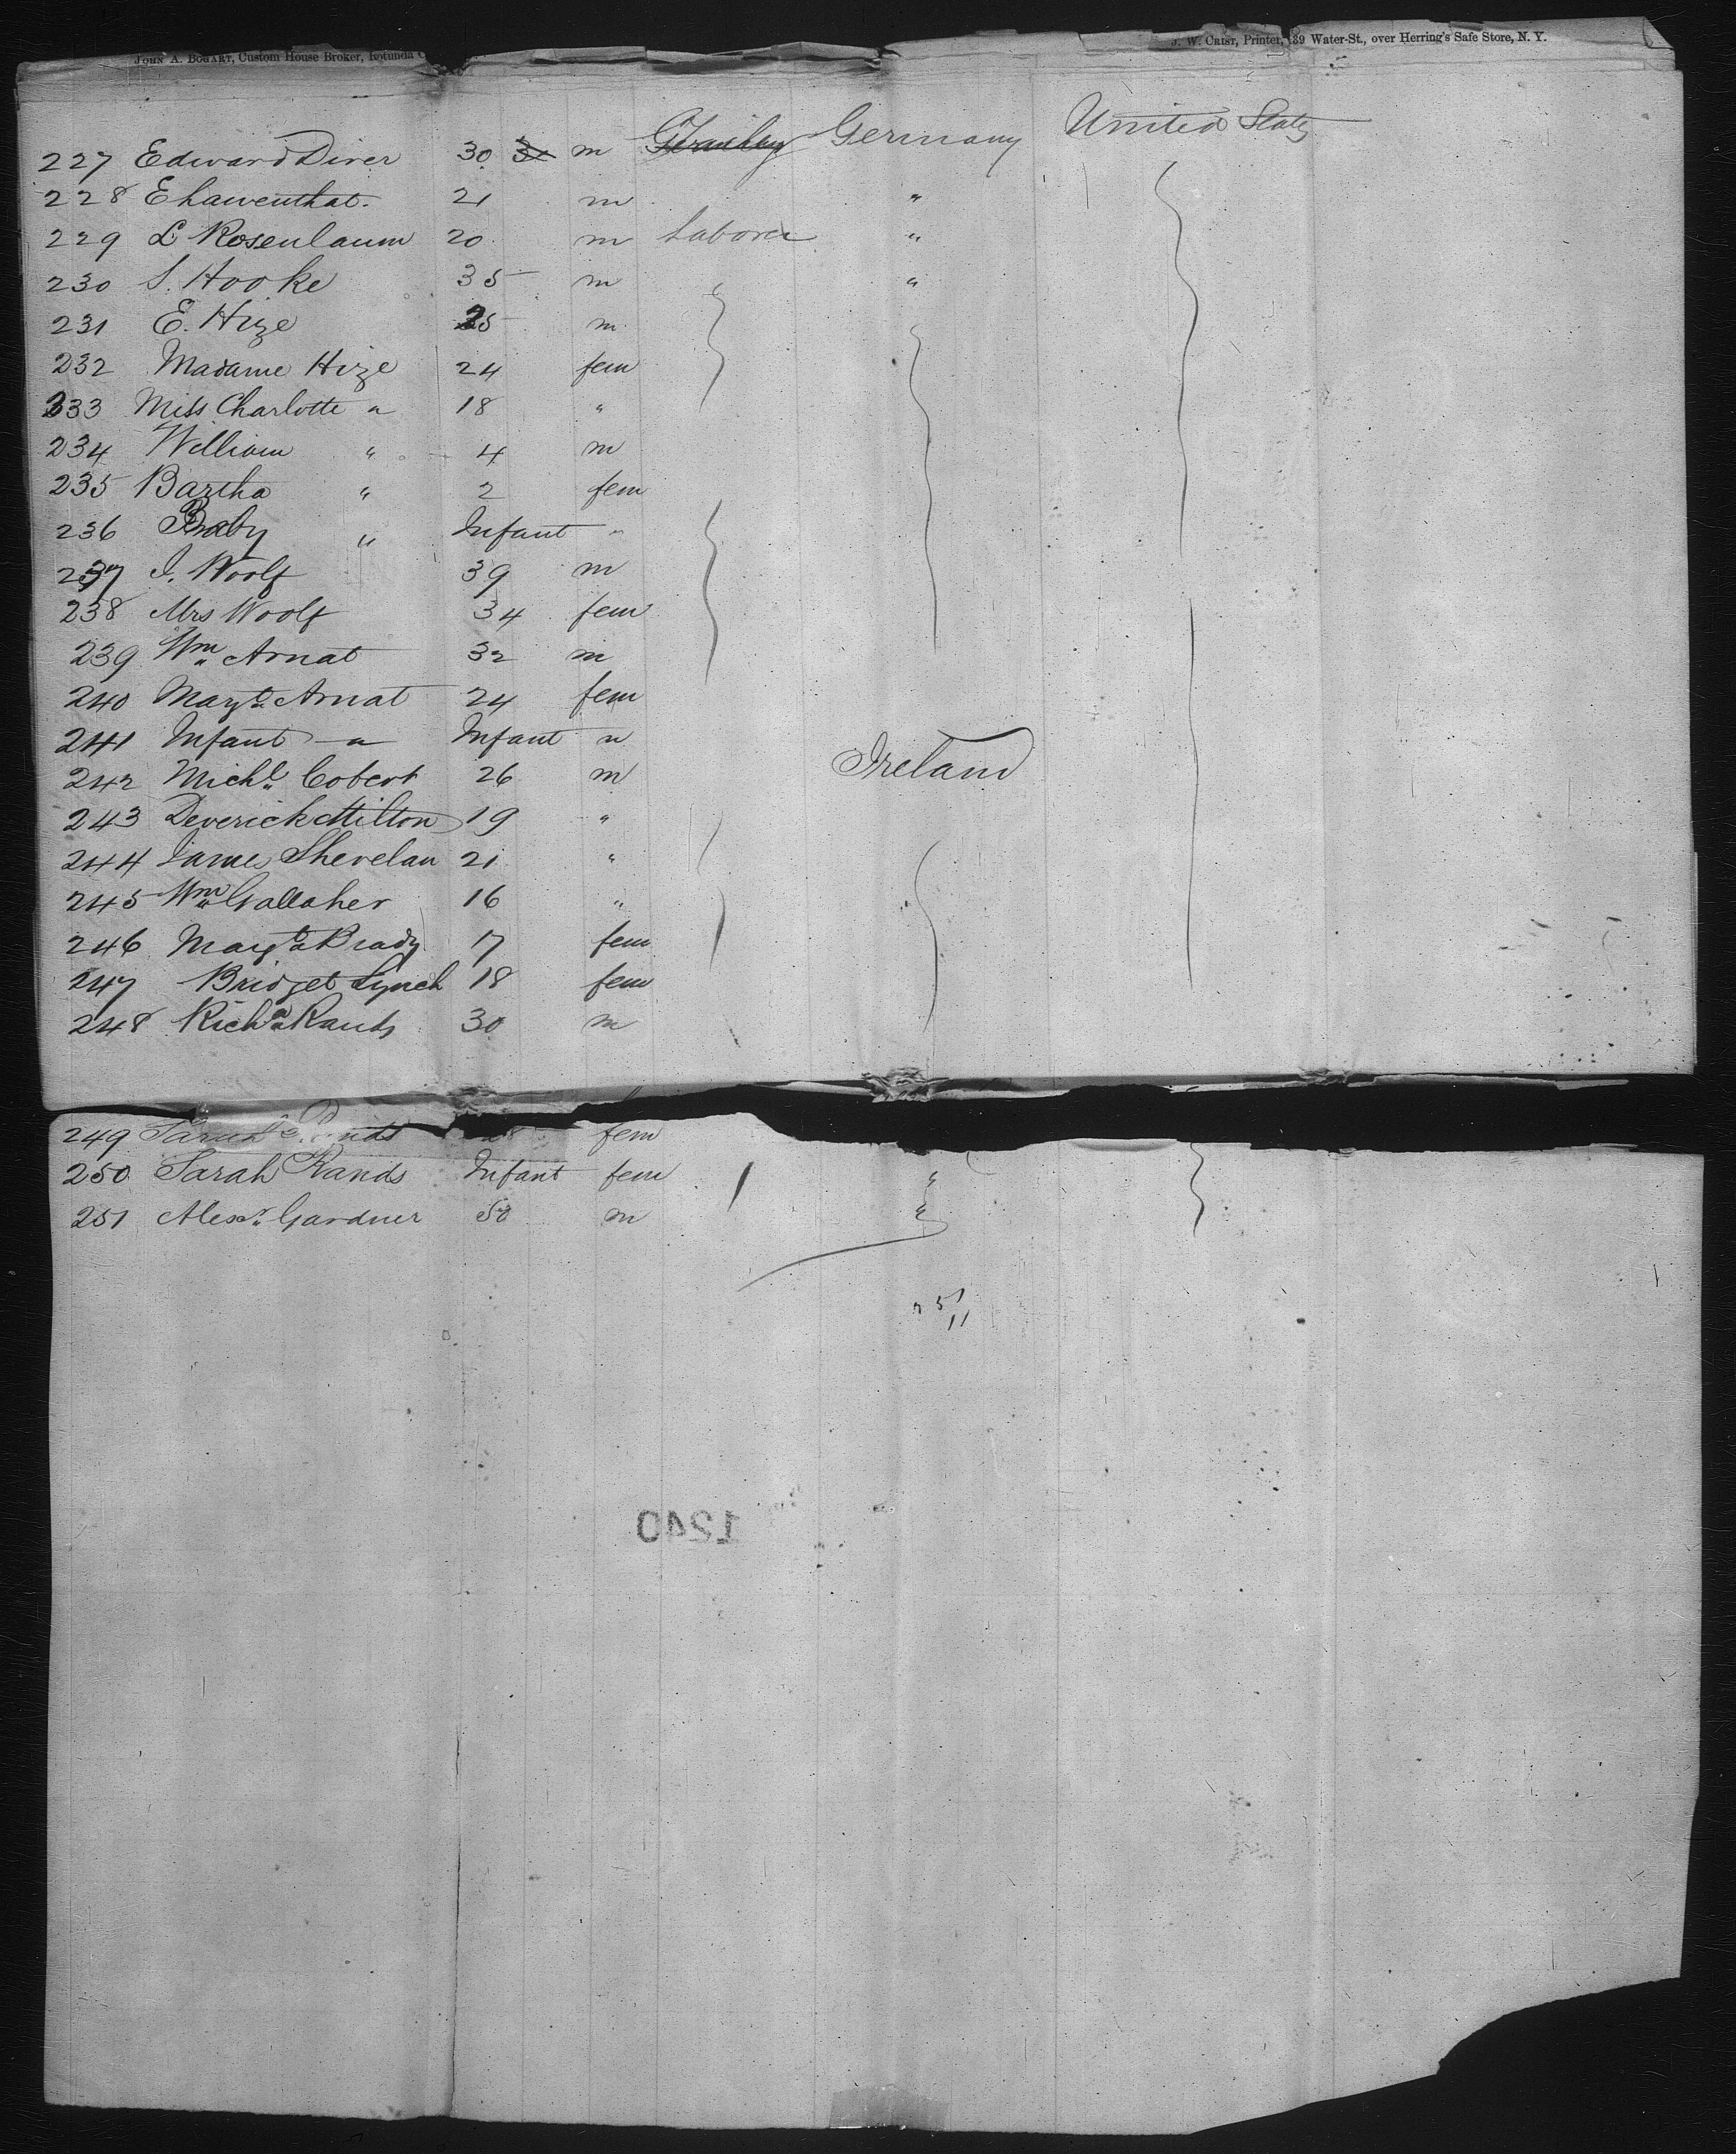 JOHN A. BOGART, Custom House Broker, Rotunda
J. W. CRIST, Printer, 89 Water-St., over Herring's Safe Store, N. Y.
227 Edward Direr 30 m Germany United States
228 E hawenthat. 21 m "
229 L Rosenbaum 20 m Laborer "
230 S. Hooke 35 m "
231 E. Hize 25 m
232 Madame Hize 24 fem
233 Miss Charlotte " 18 "
234 William " 4 m
235 Bartha " 2 fem
236 Baby " Infant "
237 I. Woolf 39 m
238 Mrs Woolf 34 fem
239 Wm Arnat 32 m
240 Margt Arnat 24 fem
241 Infant " Infant "
242 Michl Cobert 26 m Ireland
243 Deverick Milton 19 "
244 James Shevelan 21 "
245 Wm Gallaher 16 "
246 Margt Brady 17 fem
247 Bridget Lynch 18 fem
248 Richd Rands 30 m
249 Sarah Rands 28 fem
250 Sarah Rands Infant fem
251 Alexr Gardner 50 m
251
11
1240